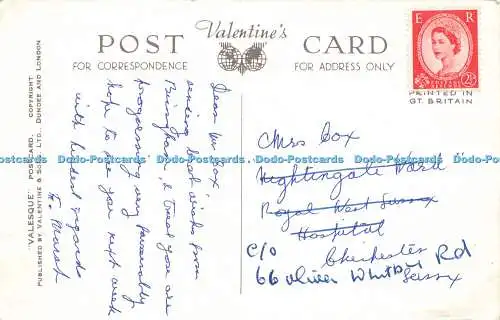 POST Valentine's CARD
FOR CORRESPONDENCE
FOR ADDRESS ONLY
E R
POSTAGE REVENUE
2½D
PRINTED IN
GT. BRITAIN
"VALESQUE" POSTCARD. COPYRIGHT
PUBLISHED BY VALENTINE & SONS LTD., DUNDEE AND LONDON
Dear Mrs Cox
sending best wishes from
& trust you are
progressing very favourably
hope to see you next week
with kindest regards
F. Marsh
Mrs Cox
Nightingale Ward
Royal West Sussex
Hospital
C/O Chichester
66 Oliver Whitby Rd
Sussex
Dodo-Postcards Dodo-Postcards Dodo-Postcards Dodo-Postcards Dodo-Postcards